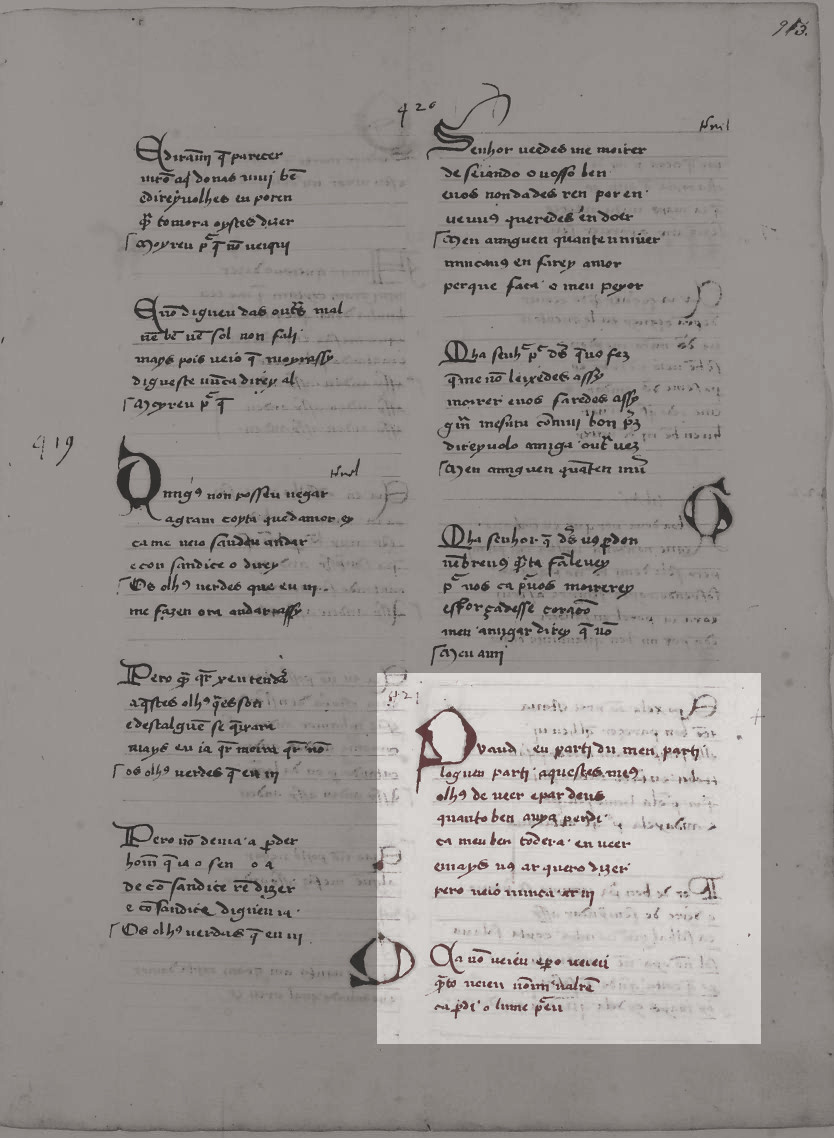 913.
426
Ediram̄ q̄ parecer
uirō aq̄ donas uiuj bē
edireyuolhes eu poren
q̄ tomora oystes dizer
Moyreu p̄ q̄ nō ueiqui
E nō digueu das outs̄ mal
nē bē uē sol non fali
mays pois ueio q̄ moyrassy
digueste nūca direy al
Moyreu p̄ q̄
419
Amigꝰ non posseu negar
agram coyta quedamor ey
came ueio sandeu andar
econ sandice o direy
Os olhꝰ uerdes que eu ui
me fazen ora andarassy
Pero q̄ q̄r xentenda
aq̄stes olhꝰ q̄es son
edestalguē se q̄ixara
mays eu ia q̄r moira q̄r nō
os olhꝰ uerdes q̄ eu ui
Pero nō deuia a ꝑder
homē q̄ ia o sen o a
de cō sandice rē dizer
e cō sandice digueu ia
Os olhꝰ uerdes q̄ eu ui
Senhor ueedes me moirer
deseiando o uosso ben
euos nondades ren poren
ueuus queredes en doer
Meu amiguen quanteu uiuer
nuncauꝰ eu farey amor
perque faca o meu peyor
Mha senh̄ p̄ ds̄ q̄uo fez
q̄me nō leixedes assy
moirer euos faredes assy
grā mesura cōmuj bon p̄z
direyuolo amiga out̄ uez
Meu amiguen quāten uiū
Mha senhor q̄ ds̄ uꝰ ꝑdon
nēbreuꝰ q̄ta
p̄ uos ca ꝑuos moirerey
esforçadesse coraçō
meu amigar direy q̄ nō
Meu ami
421
Quand eu parti du meu parti
logueu parti aquestes meꝰ
olhꝰ de ueer epar deus
quanto ben auya perdi
ca meu ben todera en ueer
emays uꝰ ar quero dizer
pero ueio nunca ar ui
Ca nō ueieu epero ueieu
q̄to ueieu nōmi ualrē
ca ꝑdi o lume p̄eu